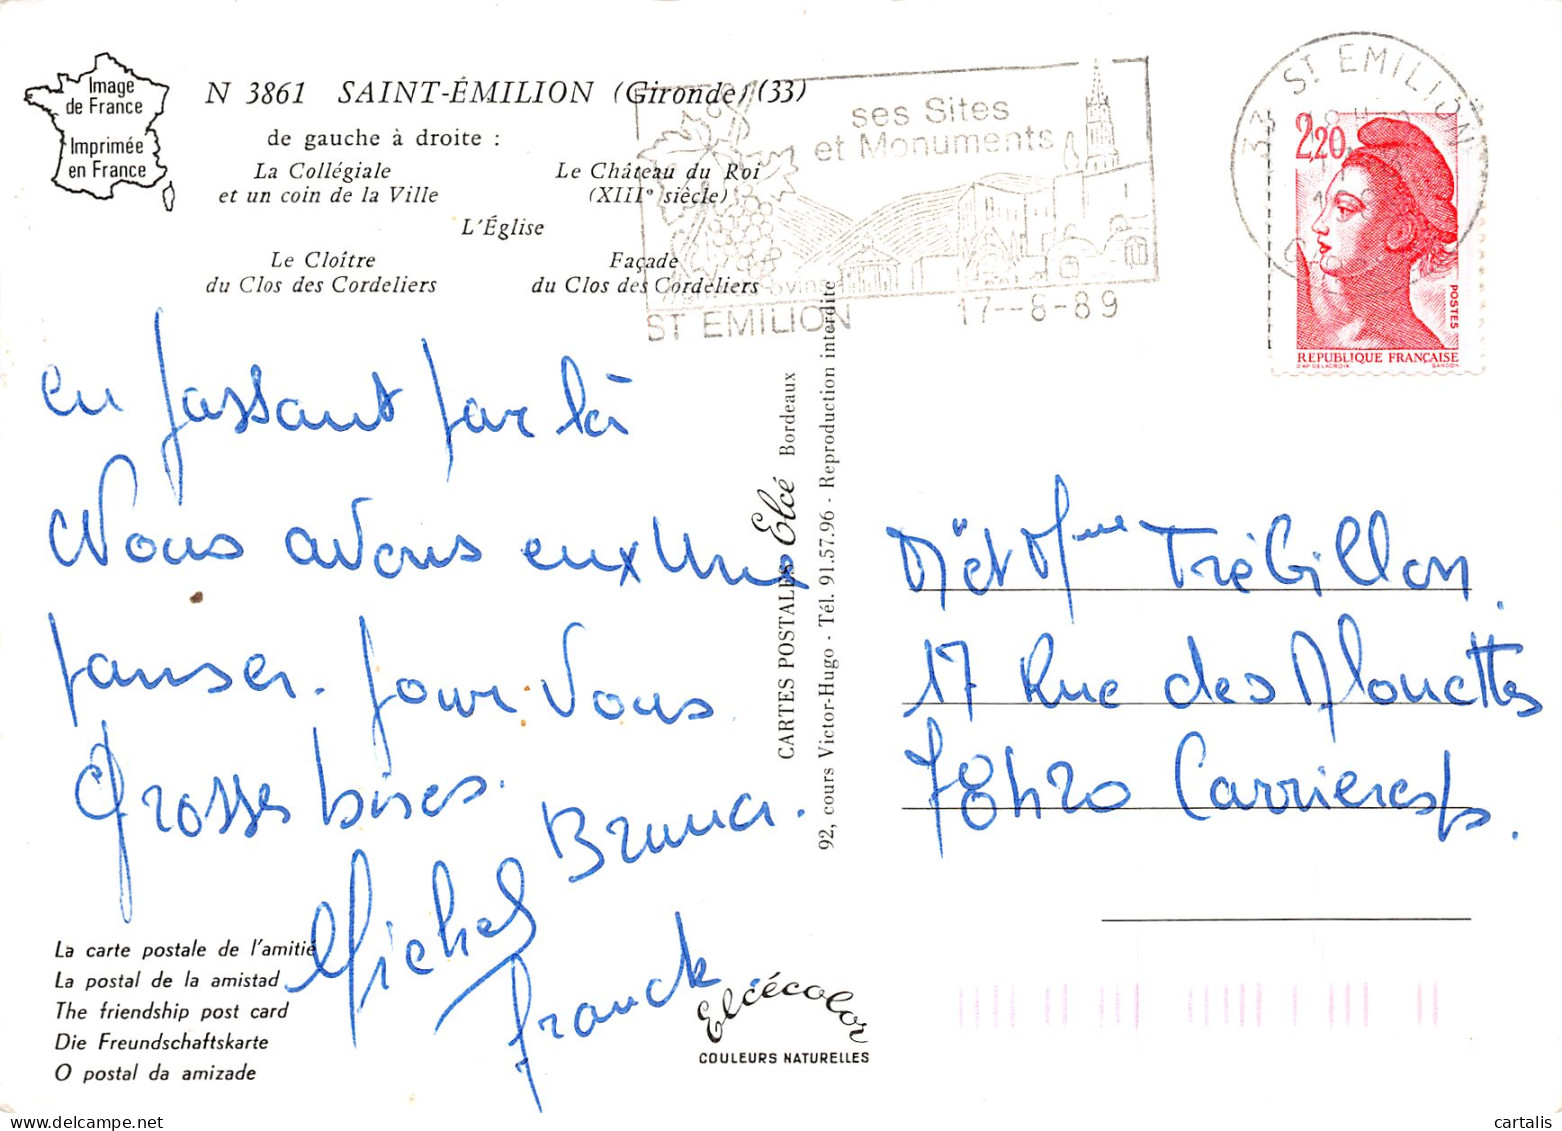 Image
de France
Imprimée
en France
N 3861 SAINT-ÉMILION (Gironde) (33)
de gauche à droite :
La Collégiale
et un coin de la Ville
Le Château du Roi
(XIIIe siècle)
L'Église
Le Cloître
du Clos des Cordeliers
Façade
du Clos des Cordeliers
ses Sites
et Monuments
ST EMILION
17--8-89
33 ST EMILION
2,20
POSTES
REPUBLIQUE FRANÇAISE
D'AP. DELACROIX GANDON
en passant par là
Nous avons eux Une
panser. pour vous
Grosses bises.
Bruna.
Michel
Franck
CARTES POSTALES Elcé Bordeaux
92, cours Victor-Hugo - Tél. 91.57.96 - Reproduction interdite
Mr et Mme Trébillon
17 Rue des Alouettes
78420 Carrieres s/s.
La carte postale de l'amitié
La postal de la amistad
The friendship post card
Die Freundschaftskarte
O postal da amizade
Elcécolor
COULEURS NATURELLES
cartalis